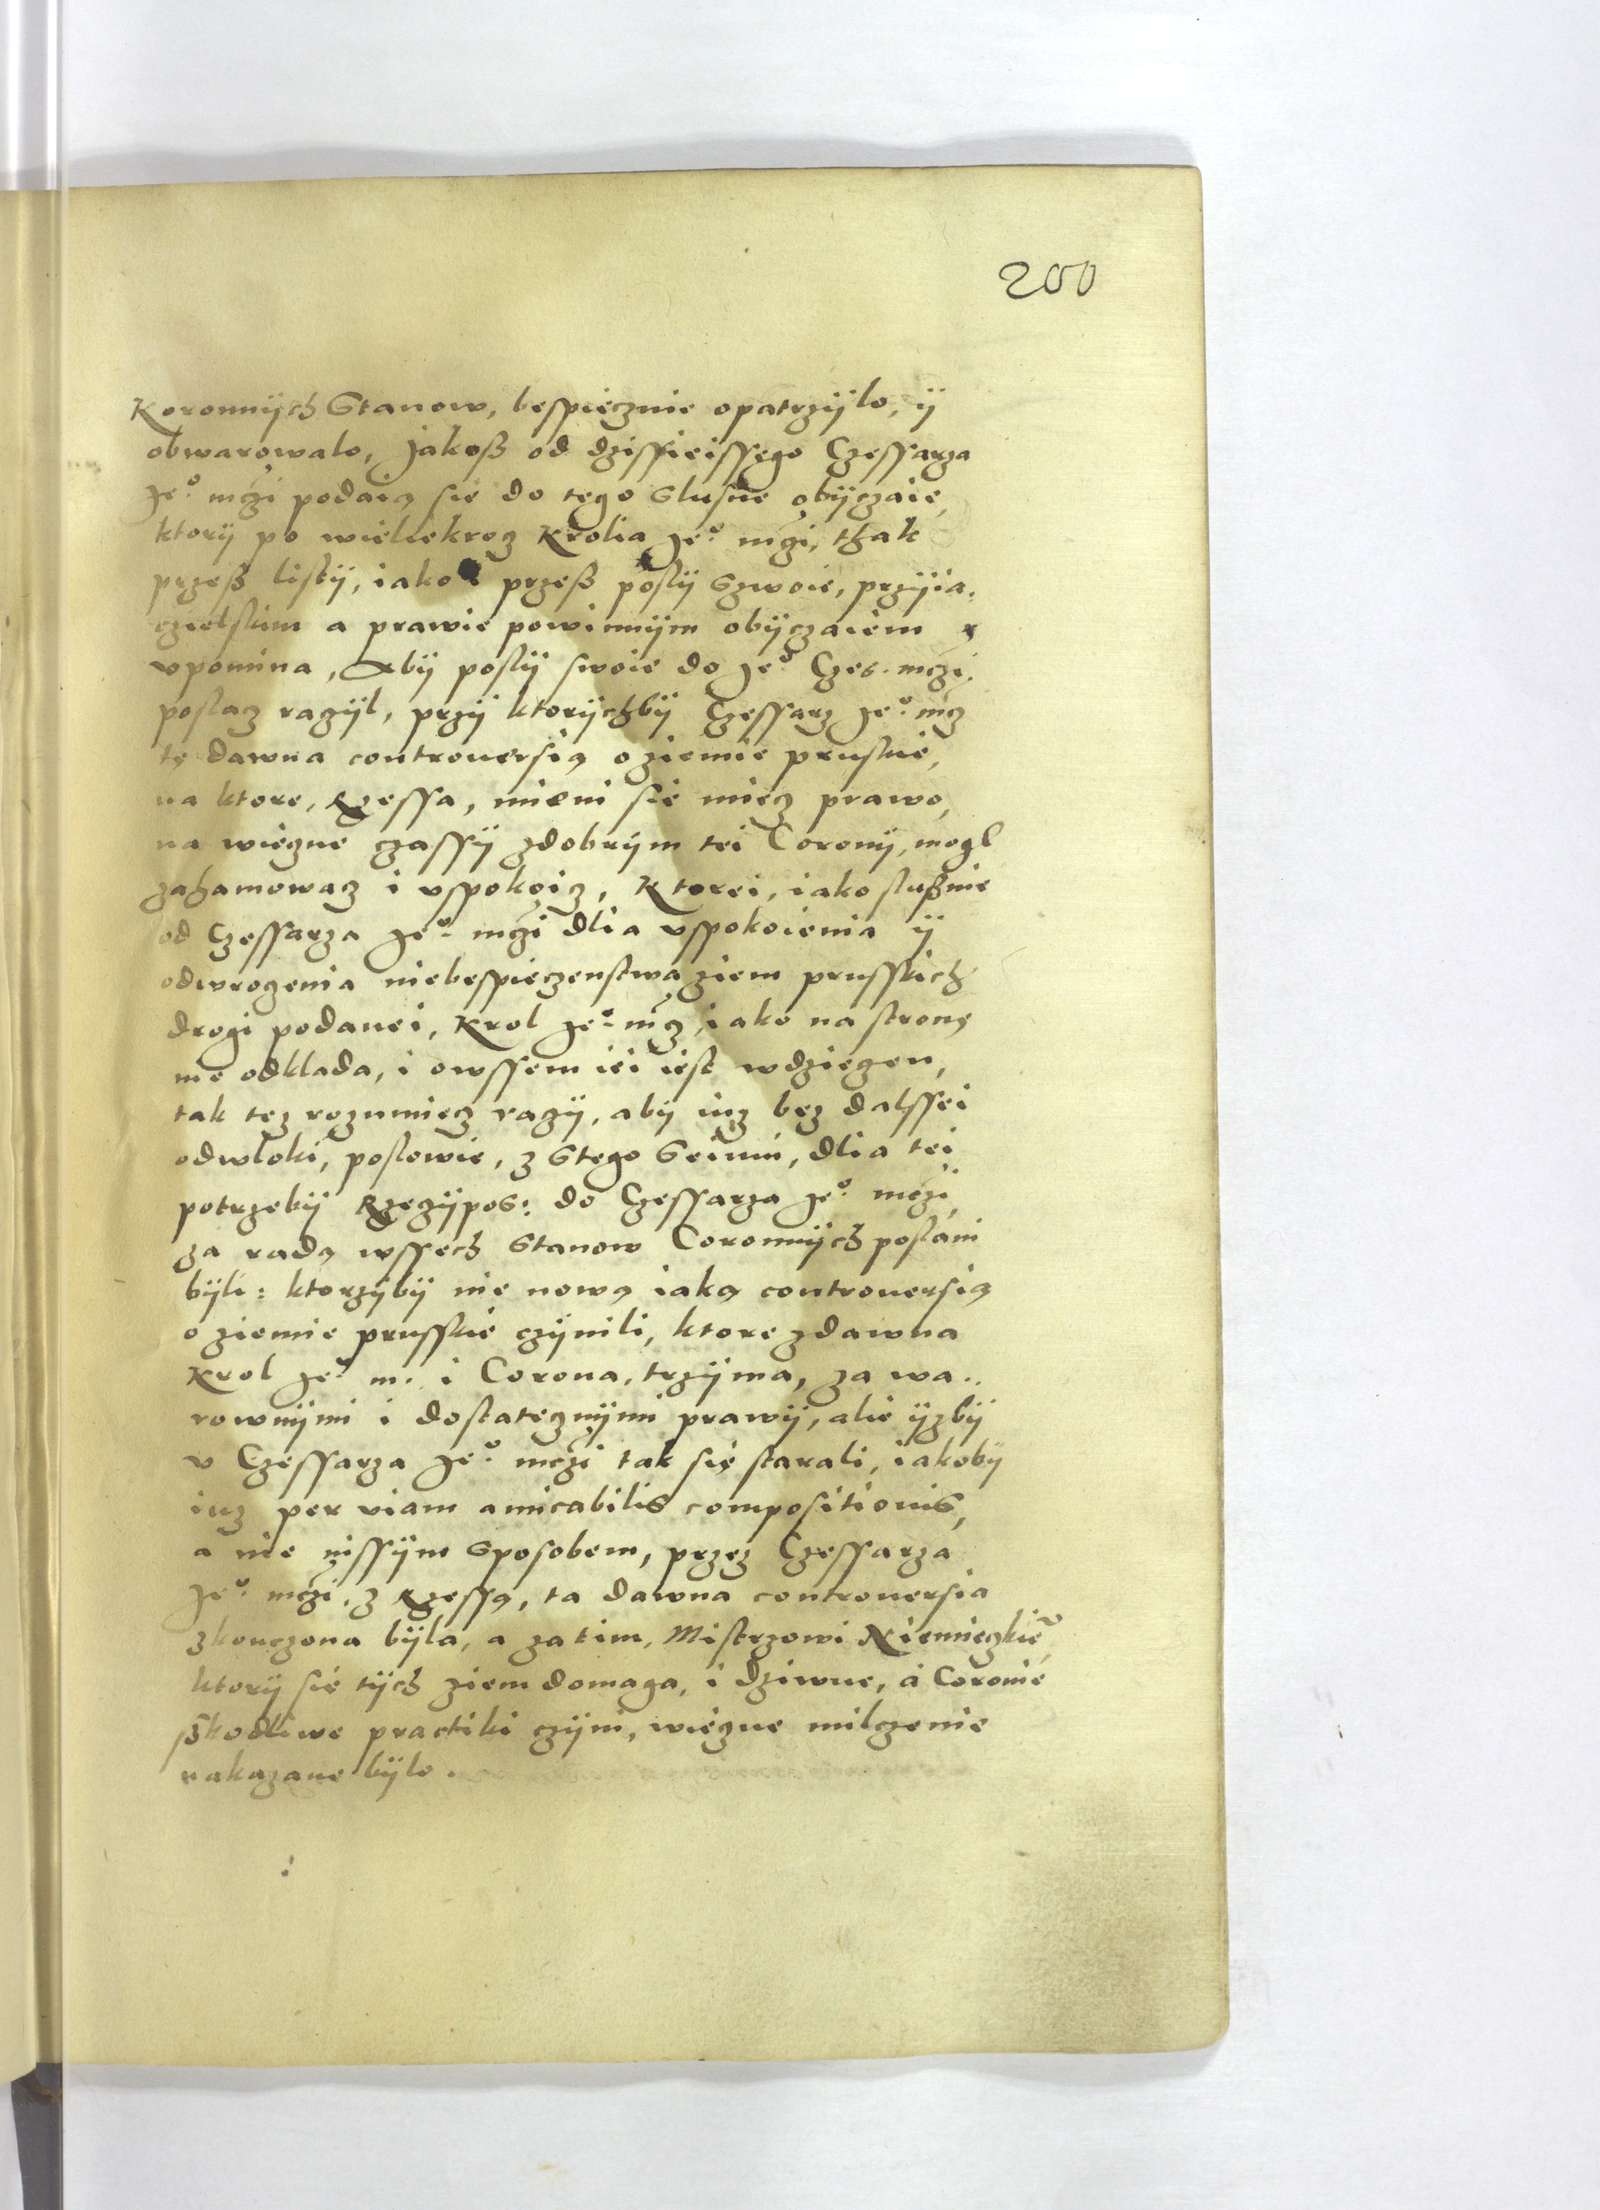 200
Koronnÿch Stanow, bespiecznie opatrzÿlo, ÿ
obwarowalo, Jakoß od dzissieissego Czessarza
Je° mczi podaią sie do tego slusne obÿczaie,
ktorÿ po wieliekroz Krolia Je° mczi, thak
przeß listÿ, iako i przeß poslÿ szwoie, przÿia-
czielskim a prawie powinnÿm obÿczaiem
vpomina, Abÿ poslÿ swoie do Je° Czes. mczi
poslacz razÿl, przÿ ktorÿchbÿ Czessarz Je° mcz
tę dawna controuersią o ziemie pruskie,
na ktore, Rzessa, mieni sie miecz prawo,
na wieczne czassÿ zdobrÿm tei Coronÿ, mogl
zahamowacz i vspokoicz, Ktorei, iako slußnie
od Czessarza Je° mczi dlia vspokoienia ÿ
odwrozenia niebespieczenstwa ziem prusskich
drogi podanei, Krol Je° mcz, iako na stronę
nie odklada, i owssem iei iest wdzięczen,
tak tez rozumiecz razÿ, abÿ iuz bez dalssei
odwloki, poslowie, z Stego Seimu, dlia tei
potrzebÿ Rzeczÿpos: do Czessarza Je° mczi,
za radą wssech Stanow Coronnÿch poslani
bÿli: ktorzÿbÿ nie nową iaką controuersią
o ziemie prusskie czÿnili, ktore zdawna
Krol Je° m. i Corona, trzÿma, za wa-
rownÿmi i dostatecznÿmi prawÿ, alie ÿzbÿ
v Czessarza Je° mczi tak się starali, iakobÿ
iuz per viam amicabilis compositionis,
a nie inssÿm sposobem, przez Czessarza
Je° mczi, z Rzessą, ta dawna controuersia
zkonczona bÿla, a zatim, Mistrzowi Niemieczkie°
ktorÿ sie tÿch ziem domaga, i dziwne, a Coronie
ßkodliwe practiki czÿni, wieczne milczenie
nakazane bÿlo.